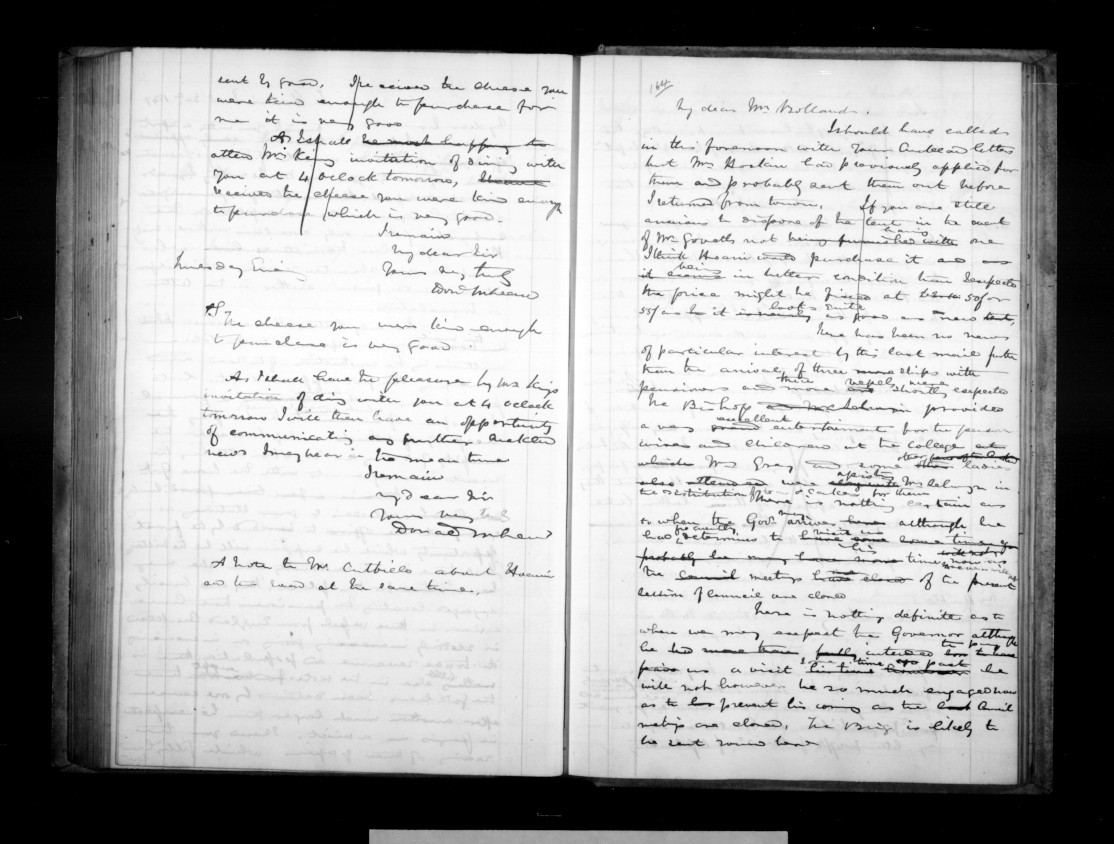 sent by guard. I received the cheese you
were kind enough to purchase for
me it is very good
As I shall be most happy to
attend Mr Kings invitation of dining with
you at 4 oclock tomorrow, I have
received the cheese you were kind enough
to purchase which is very good.
I remain
My dear Sir
Tuesday Evening Yours very truly
Dond McLean
PS
The cheese you were kind enough
to purchase is very good
As I shall have the pleasure by Mr Kings
invitation of ding with you at 4 oclock
tomorrow I will then have an opportunity
of communicating any further Auckland
news I may hear in the mean time
I remain
My Dear Sir
Yours very
Donald McLean
A note to Mr Cutfield about
as the road at the same time.
164
My dear Mr Hollands.
I should have called
in this forenoon with your Auckland letters
but Mrs Hoskin had previously applied for
them and probably sent them out before
I returned from town. If you are still
anxious to dispose of the tent in the event
of Mr Govetts not being furnished with having one
I think would purchase it and as
it seems being in better condition than I expected
the price might be fixed at 50/ or
55/ as it is nearly looks quite as good as a new tent,
There has been no news
of particular interest by this last mail further
than the arrival of three more ships with
pensioners and more three vessels were shortly expected
The Bishop provided
a very good excellent entertainment for the pensioners
wives and children at the College
which Mrs Grey and some other ladies
also attended were Mr Selwyn in
the distribution of tea & cakes for them
There is nothing certain as
to when the Govr may arrive here although he
had frequently determined to
probably he may have more time
the Council meetings of the present
session of Council are closed
There is nothing definite as to
when we may expect the Governor although
he had more than fully intended to have
paid us a visit some time past he
will not however be so much engaged now
as to prevent his coming as the Council
meetings are closed. The Brig is likely to
be sent round here